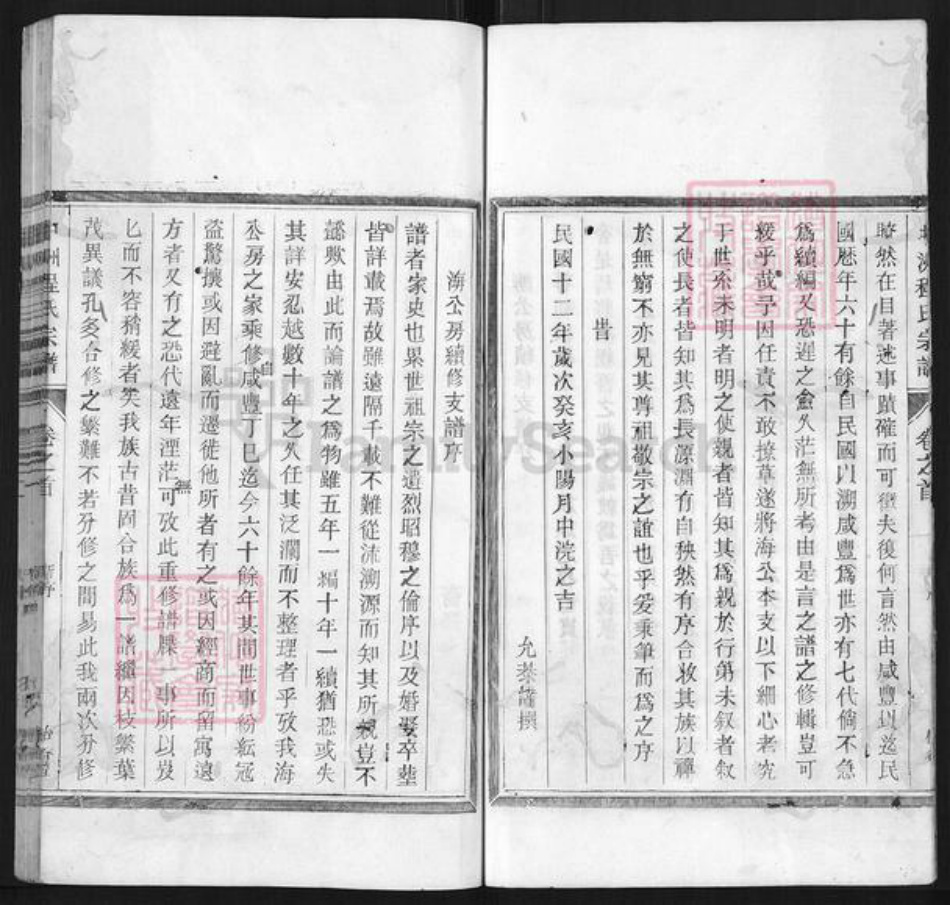 瞭然在目著述事蹟確而可徵夫復何言然由咸豐以迄民
國歷年六十有餘自民國以溯咸豐爲世亦有七代倘不急
爲續編又恐遲之愈久茫無所考由是言之譜之修輯豈可
緩乎哉予因任責不敢撩草遂將海公本支以下細心考究
于世系未明者明之使親者皆知其爲親於行第未叙者叙
之使長者皆知其爲長源淵有自秩然有序合收其族以禪
於無窮不亦見其尊祖敬宗之誼也乎爰秉筆而爲之序
旹
民國十二年歲次癸亥小陽月中浣之吉
允恭謹撰
海公房續修支譜序
譜者家史也累世祖宗之遺烈昭穆之倫序以及婚娶卒塟
皆詳載焉故雖遠隔千載不難從流溯源而知其所親豈不
懿歟由此而論譜之爲物雖五年一編十年一續猶恐或失
其詳安忍越數十年之久任其泛瀾而不整理者乎攷我海
公房之家乘修自咸豐丁巳迄今六十餘年其間世事紛紜冦
盜驚攘或因避亂而遷徙他所者有之或因經商而留寓遠
方者又有之恐代遠年湮茫無可攷此重修譜牒一事所以岌
匕而不容稍緩者矣我族古昔固合族爲一譜繼因枝繁葉
茂異議孔多合修之繁難不若分修之簡易此我兩次分修
程氏宗譜
卷之首